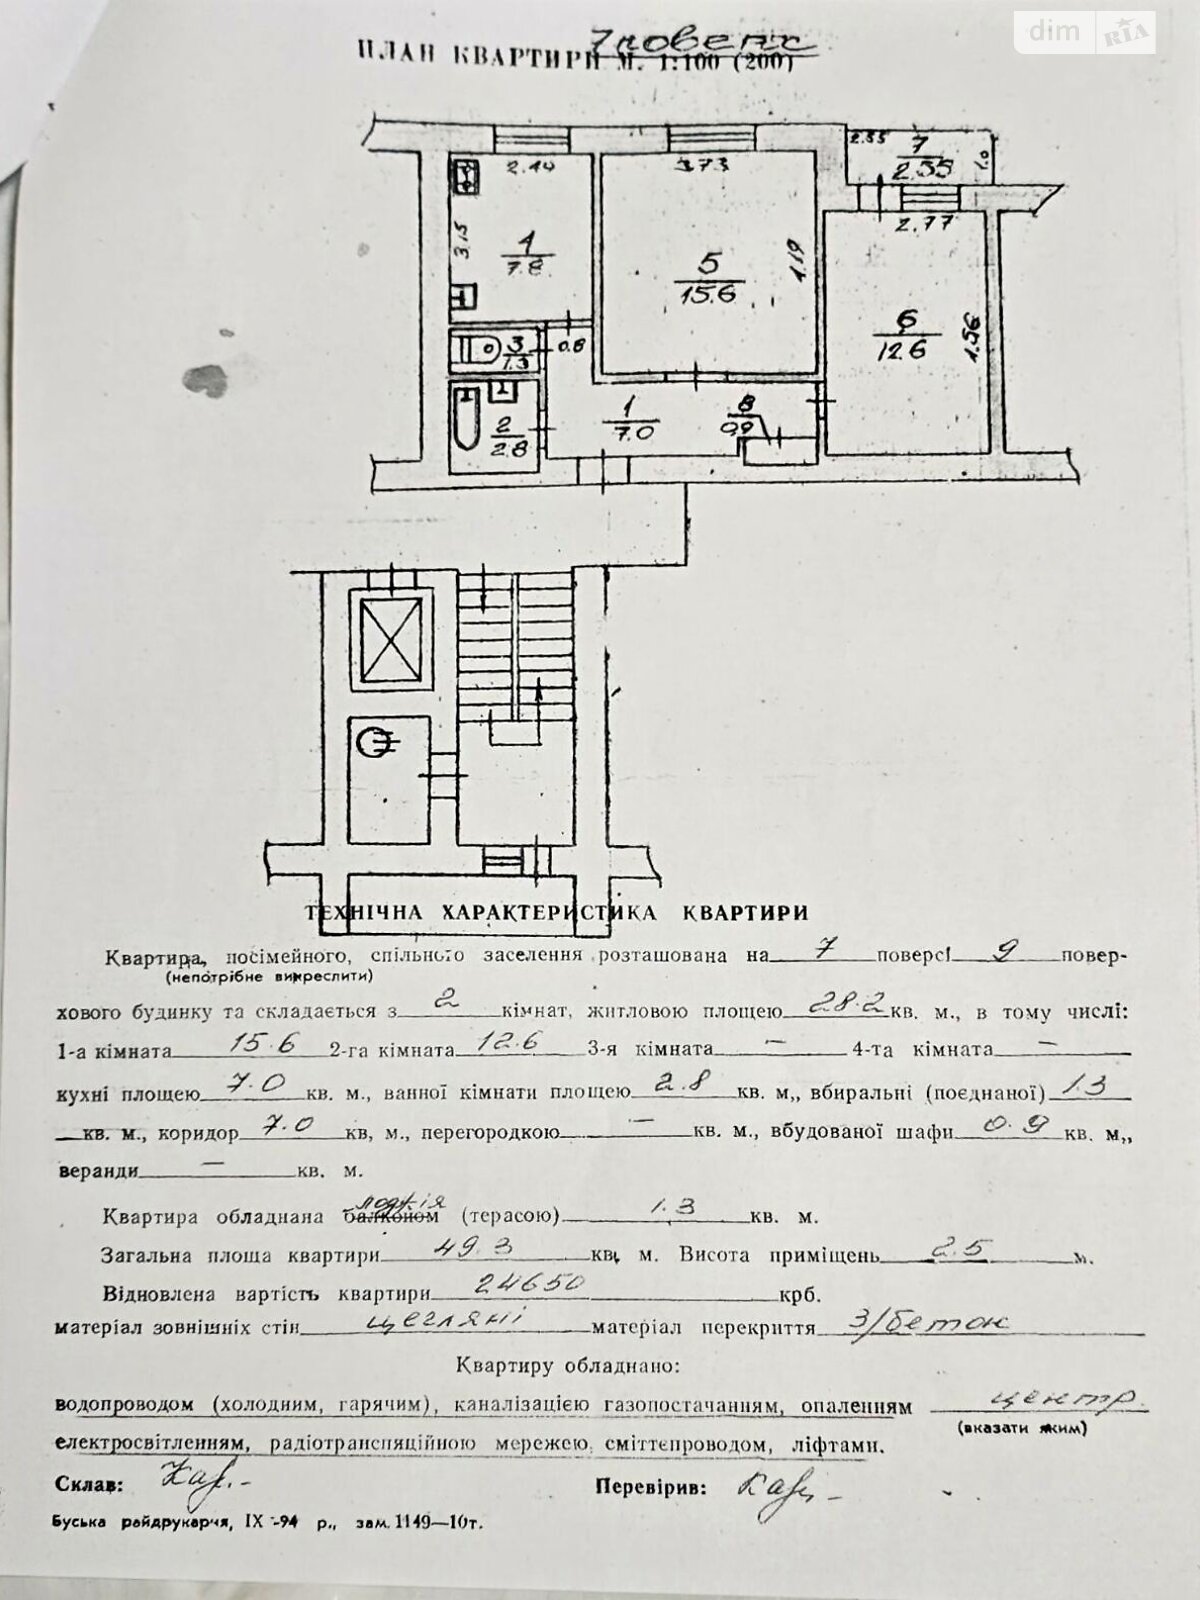 dim RIA
7 поверх
ПЛАН КВАРТИРИ М. 1:100 (200)
2.55 7 1.0
2.55
2.44 3.73
2.77
3.15 4 7.8
5 15.6 4.19
6 12.6 4.56
3 1.3 0.8
1 7.0
8 0.9
2 2.8
ТЕХНІЧНА ХАРАКТЕРИСТИКА КВАРТИРИ
Квартира, посімейного, спільного заселення розташована на 7 поверсі 9 повер-
(непотрібне викреслити)
хового будинку та складається з 2 кімнат, житловою площею 28.2 кв. м., в тому числі:
1-а кімната 15.6 2-га кімната 12.6 3-я кімната — 4-та кімната —
кухні площею 7.0 кв. м., ванної кімнати площею 2.8 кв. м,, вбиральні (поєднаної) 1.3
кв. м., коридор 7.0 кв, м., перегородкою — кв. м., вбудованої шафи 0.9 кв. м,,
веранди — кв. м.
лоджія
Квартира обладнана балконом (терасою) 1.3 кв. м.
Загальна площа квартири 49.3 кв, м. Висота приміщень 2.5 м.
Відновлена вартість квартири 24650 крб.
матеріал зовнішніх стін цегляні матеріал перекриття З/бетон
Квартиру обладнано:
водопроводом (холодним, гарячим), каналізацією газопостачанням, опаленням центр.
(вказати яким)
електросвітленням, радіотрансляційною мережею, сміттєпроводом, ліфтами.
Склав: Перевірив:
Буська райдрукарня, ІХ -94 р., зам. 1149—10т.